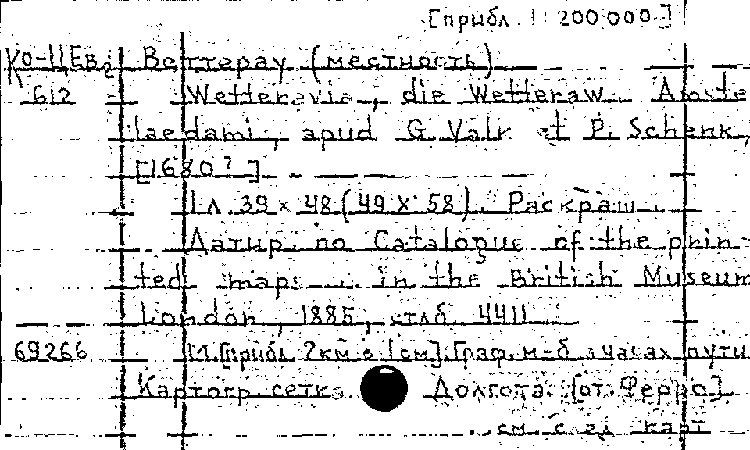 [прибл. 1:200 000]
Ко-ЦЕв2 Веттерау (местность)
612 Wetteravia, die Wetteraw. Amste
laedami, apud G. Valk et P. Schenk,
[1680?]
1 л. 39 × 48 (49 × 58). Раскраш.
Датир. по Catalogue of the prin-
ted maps ... in the British Museum
London, 1885, стлб. 4411
69266 М.[прибл. 2км в 1см]. Граф. м-б в часах пути
Картогр. сетка. Долгота [от Ферро]
см. след. карт